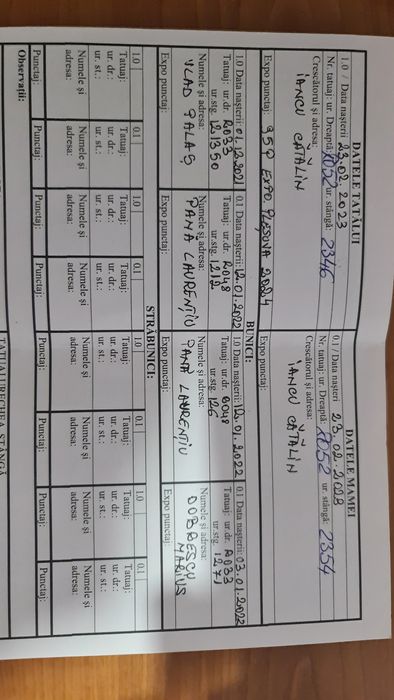 DATELE TATĂLUI
1.0 / Data nașterii 23.02.2023
Nr. tatuaj: ur. Dreaptă: R052 ur. stângă: 2346
Crescătorul și adresa:
IANCU CĂTĂLIN
Expo punctaj: 95P EXPO. PLEȘOVA 2024
DATELE MAMEI
0.1 / Data nașterii 23.02.2023
Nr. tatuaj: ur. Dreaptă: R052 ur. stângă: 2354
Crescătorul și adresa:
IANCU CĂTĂLIN
Expo punctaj:
BUNICI:
1.0 Data nașterii: 01.12.2021
Tatuaj: ur. dr. R033
ur.stg. 121350
Numele și adresa:
VLAD PALAS
Expo punctaj:
0.1 Data nașterii: 12.01.2022
Tatuaj: ur. dr. R048
ur.stg. 1212
Numele și adresa:
PANĂ LAURENȚIU
Expo punctaj:
1.0 Data nașterii: 12.01.2022
Tatuaj: ur. dr. R048
ur.stg. 126
Numele și adresa:
PANĂ LAURENȚIU
Expo punctaj:
0.1 Data nașterii: 03.01.2022
Tatuaj: ur. dr. R033
ur.stg. 1271
Numele și adresa:
DOBRESCU
MARIUS
Expo punctaj:
STRĂBUNICI:
1.0
Tatuaj:
ur. dr.:
ur. st.:
Numele și
adresa:
Punctaj:
0.1
Tatuaj:
ur. dr.:
ur. st.:
Numele și
adresa:
Punctaj:
1.0
Tatuaj:
ur. dr.:
ur. st.:
Numele și
adresa:
Punctaj:
0.1
Tatuaj:
ur. dr.:
ur. st.:
Numele și
adresa:
Punctaj:
1.0
Tatuaj:
ur. dr.:
ur. st.:
Numele și
adresa:
Punctaj:
0.1
Tatuaj:
ur. dr.:
ur. st.:
Numele și
adresa:
Punctaj:
1.0
Tatuaj:
ur. dr.:
ur. st.:
Numele și
adresa:
Punctaj:
0.1
Tatuaj:
ur. dr.:
ur. st.:
Numele și
adresa:
Punctaj:
Observații: